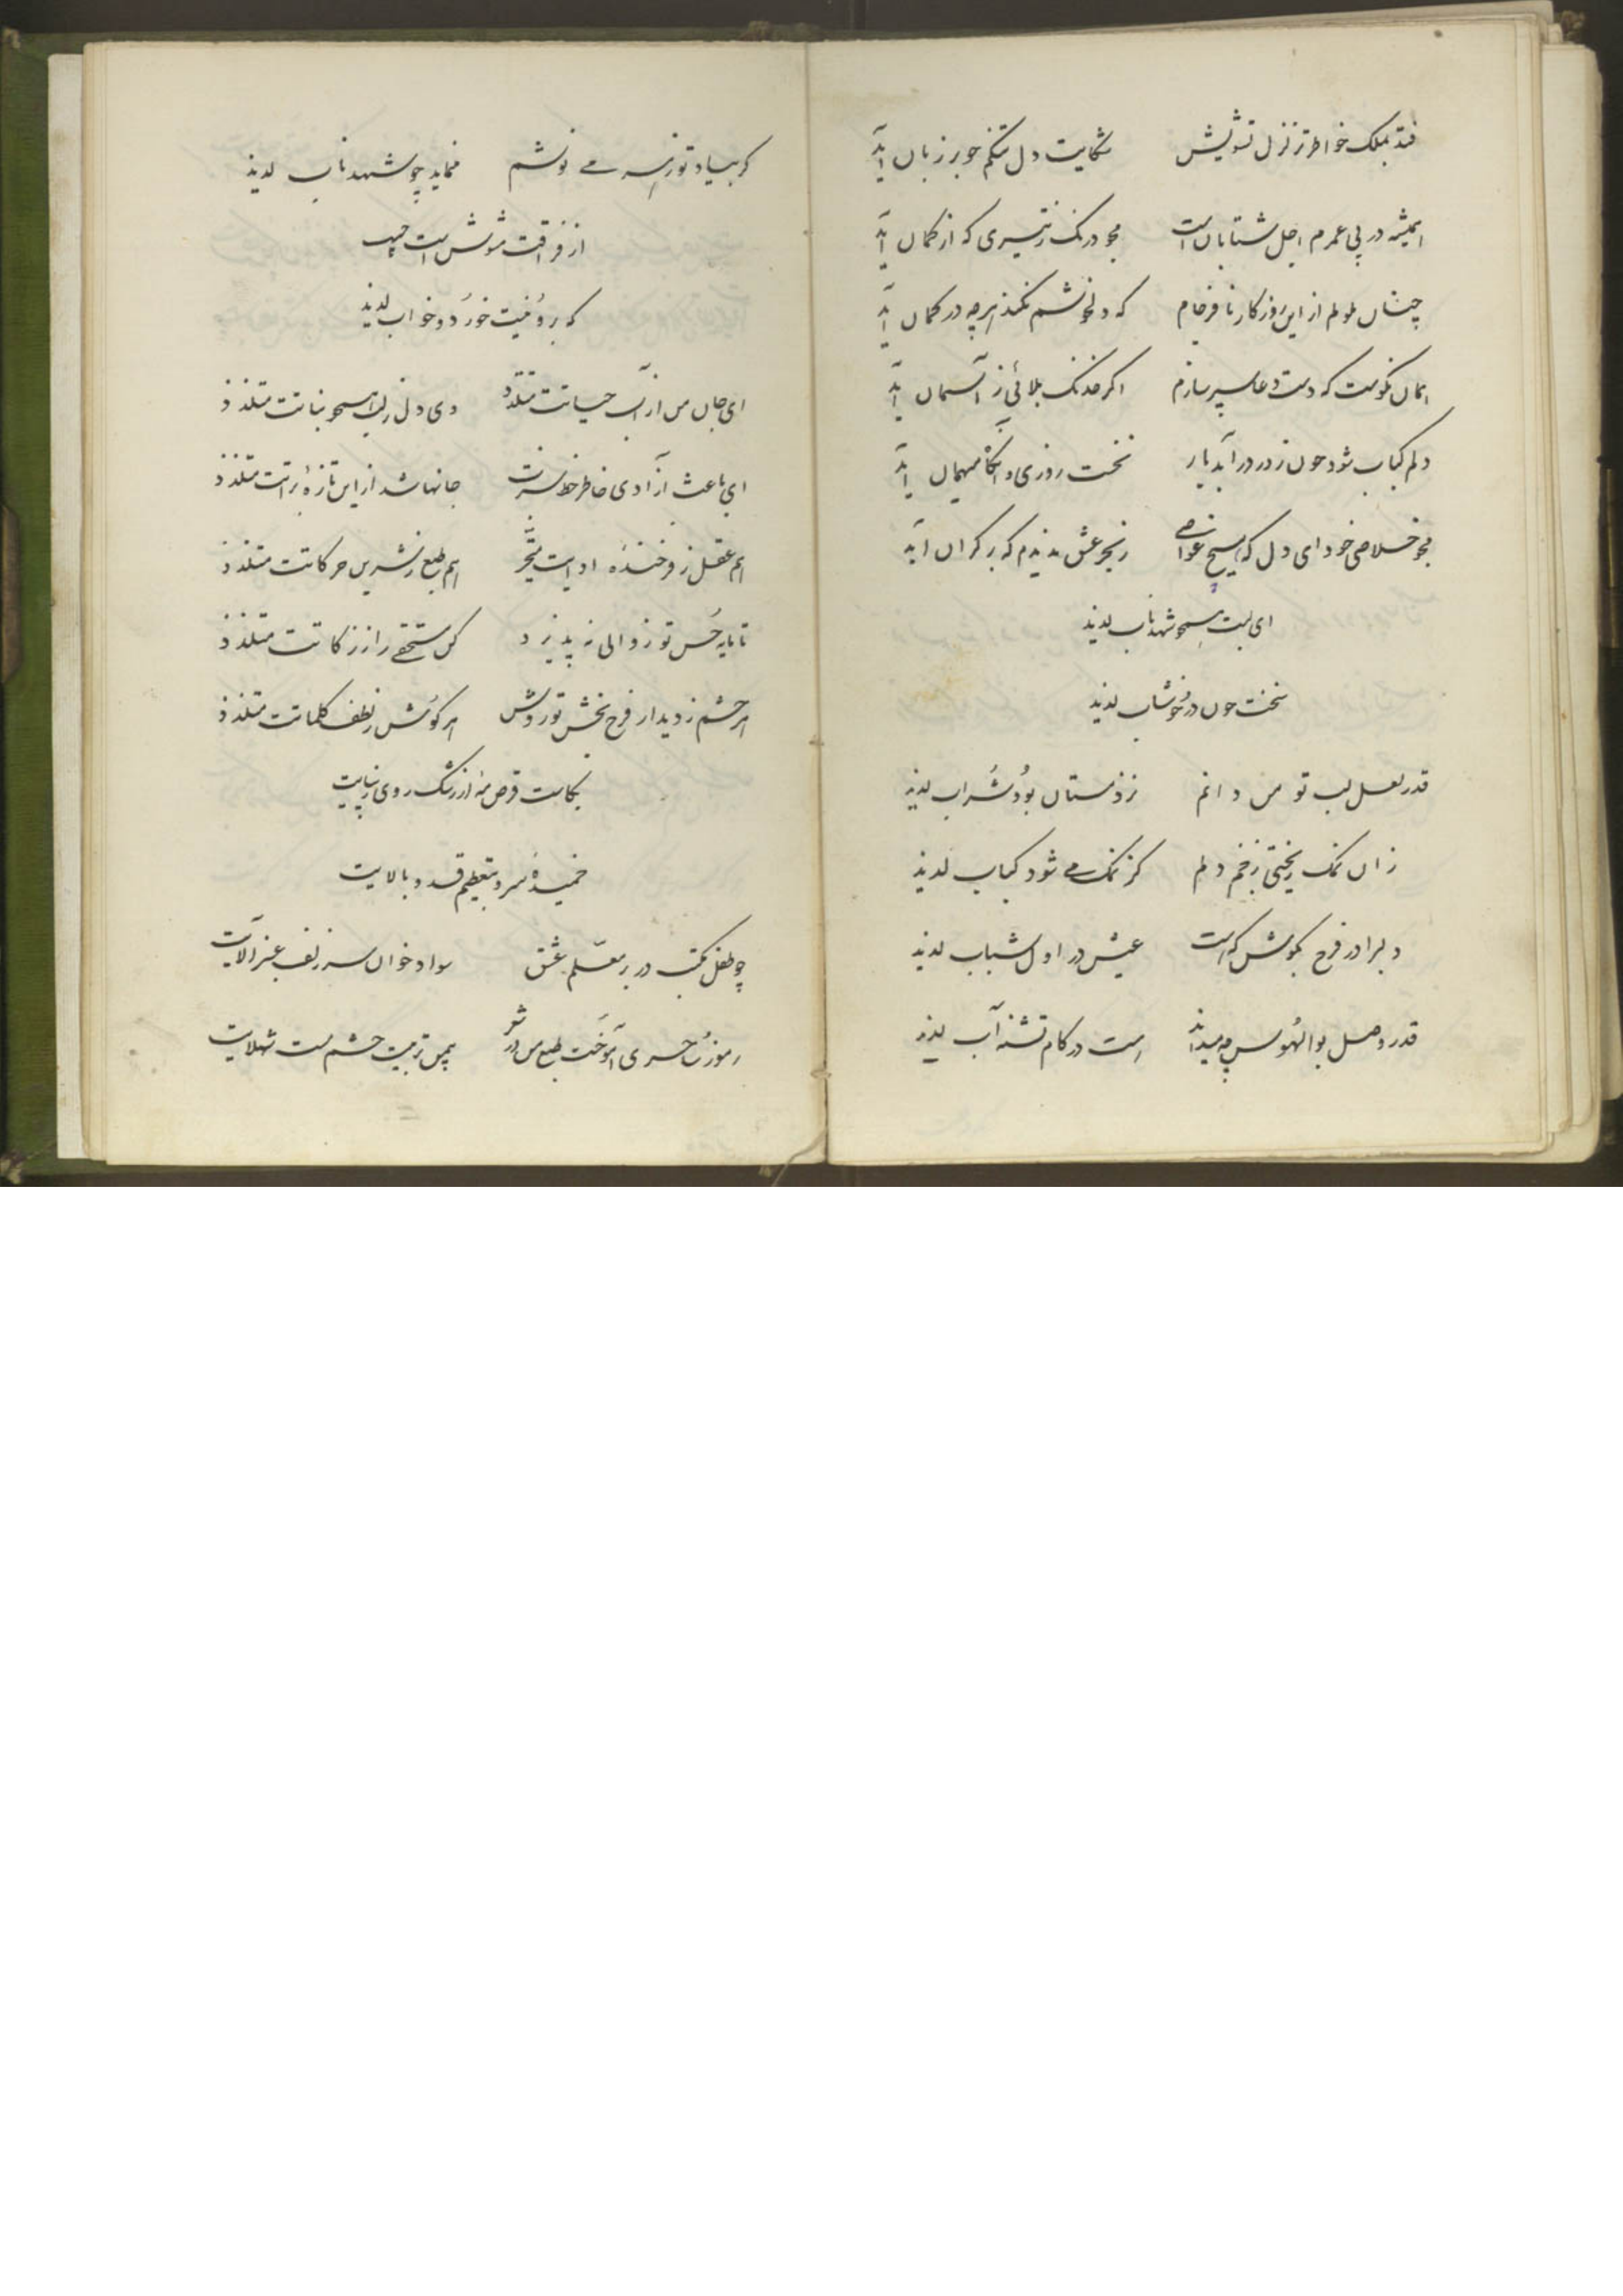 فتد بملک خواطر تزلزل تشویش شکایت دل تنگم چو بر زبان آید
همیشه در پی عمرم اجل شتابان است مجو درنگ ز تیری که از کمان آید
چنان ملولم ازین روزگار نافرجام که دلخوشم نکند هرچه در گمان آید
همان نکوست که دست دعا سپر سازم اگر خدنگ بلائی ز آسمان آید
دلم کباب شود چون ز در درآید یار نخست روزی و آنگاه میهمان آید
مجو خلاصی خود ای دل که هیچ غواصی ز بحر عشق ندیدم که بر کران آید
ای لبت همچو شهد ناب لذیذ
سخنت چون در خوشاب لذیذ
قدر لعل لب تو من دانم نزد مستان بود شراب لذیذ
زان نمک ریختی بزخم دلم کز نمک می شود کباب لذیذ
دلبرا در فرح بکوش که هست عیش در اول شباب لذیذ
قدر وصل بوالهوس چه میداند هست در کام تشنه آب لذیذ
گر بیاد تو زهر می نوشم نماید چو شهد ناب لذیذ
از فراقت مشوش است حبیب
که برو نیست خورد و خواب لذیذ
ای جان من از آب حیاتت متلذذ وی دل ز لب همچو نباتت متلذذ
ای باعث آزادی خاطر خط سبزت جانها شد ازین تازه براتت متلذذ
هم عقل ز فرخنده ادایت متحیر هم طبع ز شیرین حرکاتت متلذذ
تا مایه حسن تو زوالی نه پذیرد کن مستحقی را ز زکاتت متلذذ
هر چشم ز دیدار فرح بخش تو روشن هر گوش ز لطف کلماتت متلذذ
بکاست قرص مه از رشک روی زیبایت
خمیده سرو بتعظیم قد و بالایت
چو طفل مکتب در بر معلم عشق سواد خوان سر زلف عنبرآلایت
رموز ساحری آموخت طبع من در شعر بیمن تربیت چشم مست شهلایت